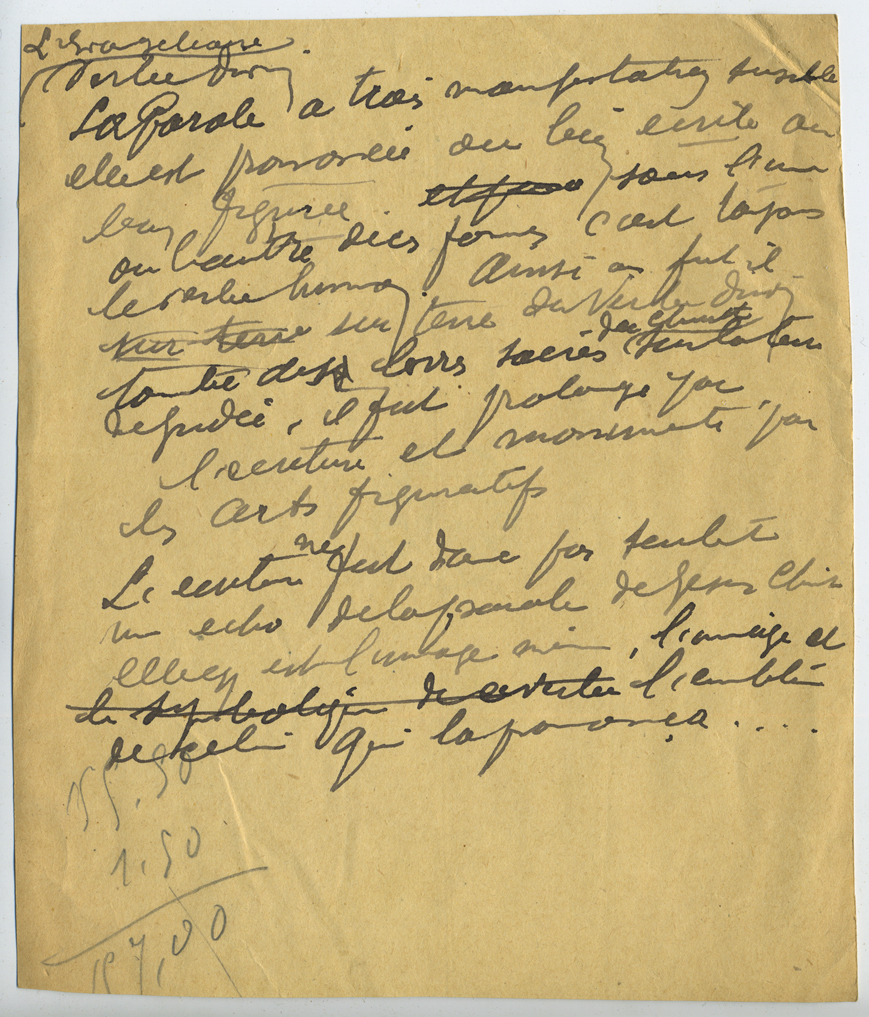 L'Evangeliaire
Verbe Divin
La Parole a trois manifestations sensible
elle est prononcée ou bien ecrite ou
bien figurée et sous l'une
ou l'autre de ces formes c'est toujours
le verbe humain. Ainsi en fut il
sur terre sur terre du Verbe Divin
du Christ
tombé des levres sacrées
de Judée, il fut prolongé par
l'ecriture et monumenté par
les arts figuratifs
L'ecriture ne fut donc pas seulet
un echo de la parole de Jesus Christ
elle en est l'image même, l'image et
la symbolique de l'emblême
de celui qui la prononça....
15,50
1,50
17,00